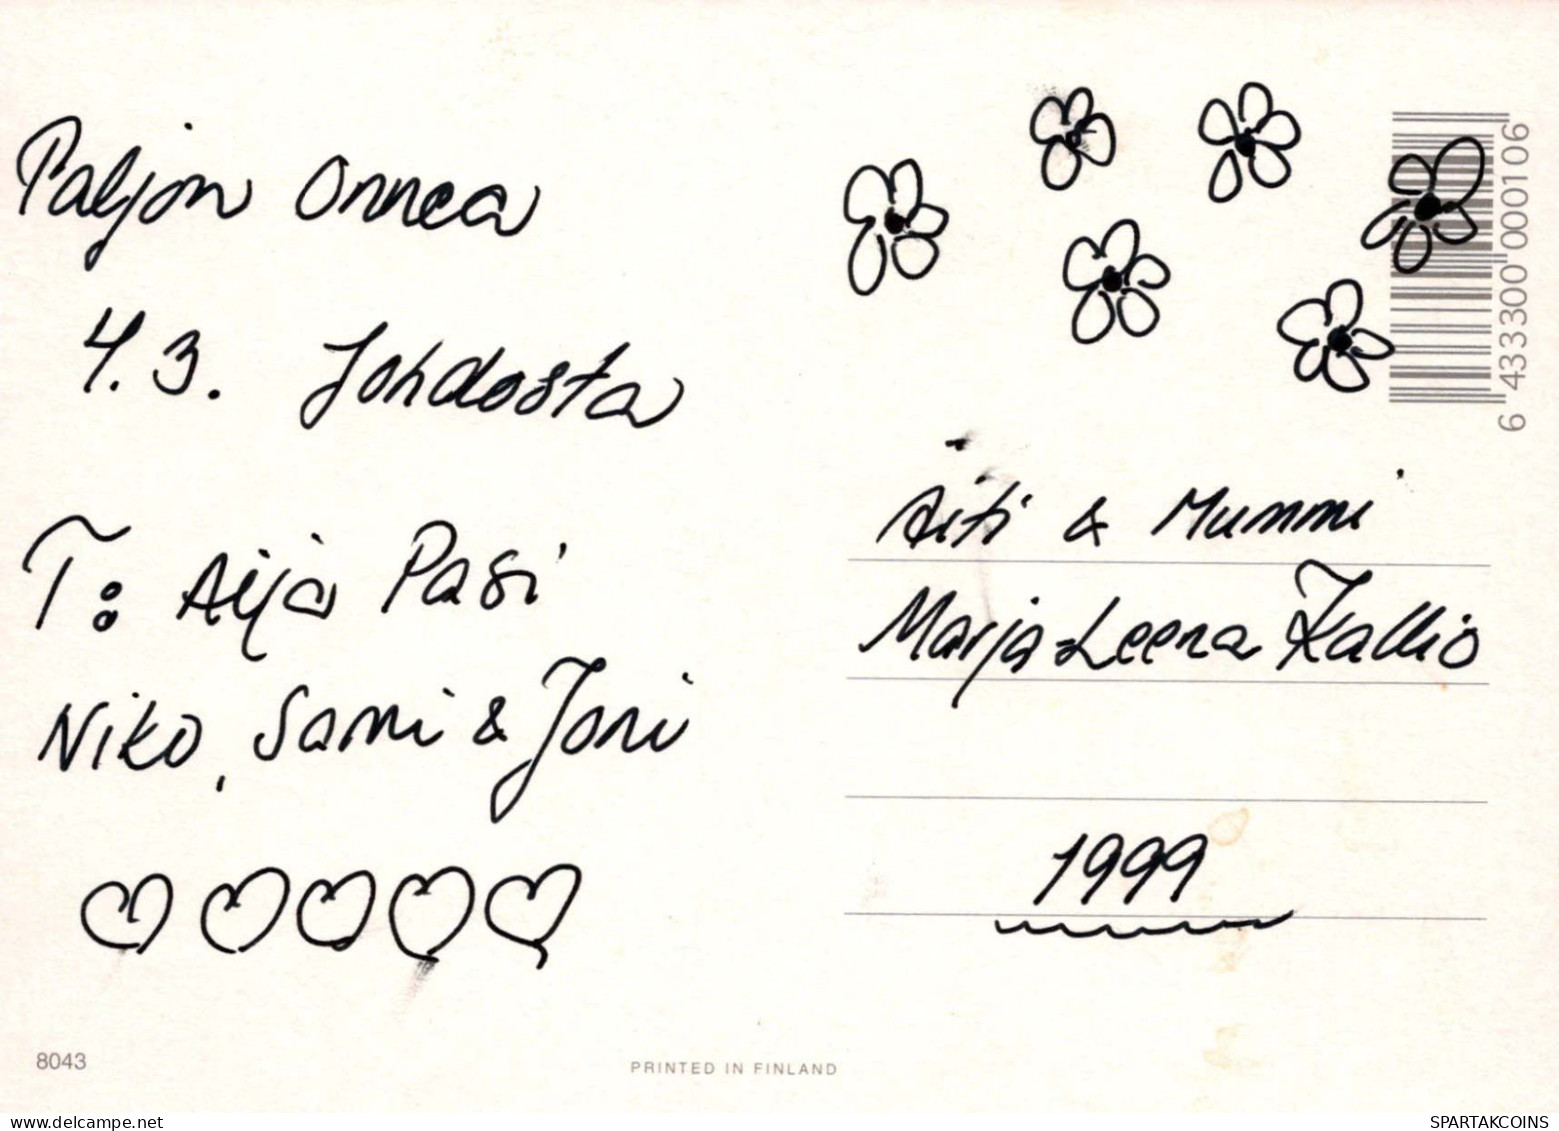 Paljon Onnea
4.3. Johdosta
T: Aija Pasi
Niko, Sami & Joni
Äiti & Mummi
Marja-Leena Kallio
1999
6 433300 000106
8043
PRINTED IN FINLAND
www.delcampe.net
SPARTAKCOINS